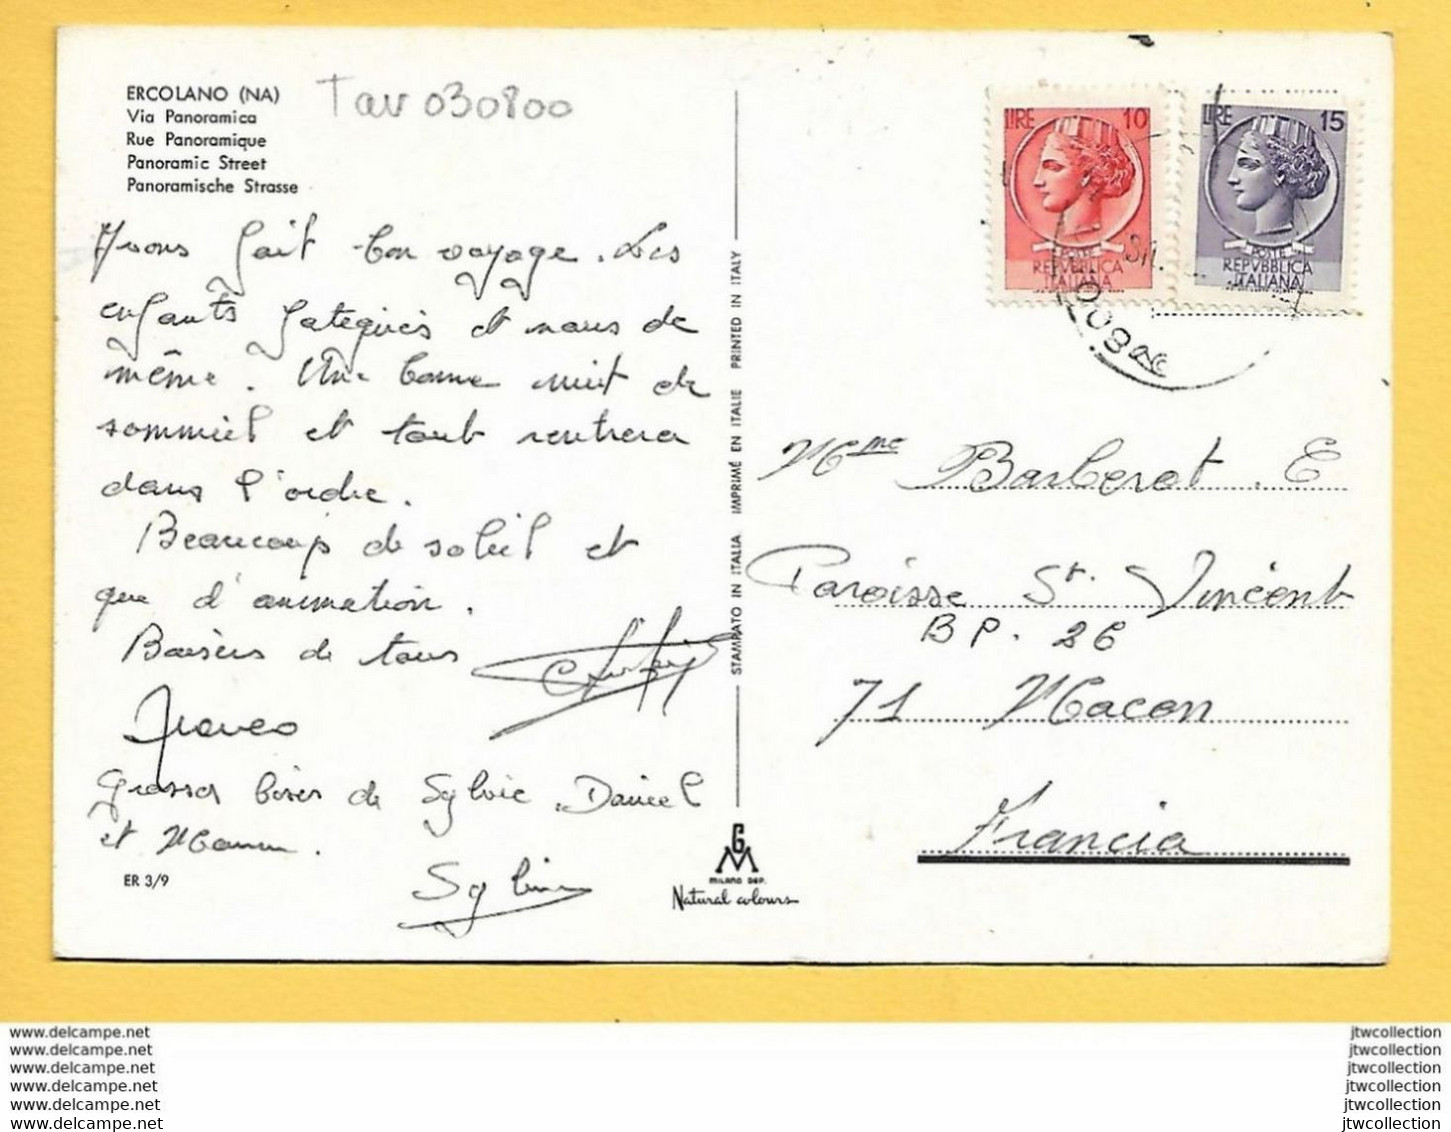 ERCOLANO (NA)
Via Panoramica
Rue Panoramique
Panoramic Street
Panoramische Strasse
Tav 030800
Avons fait bon voyage. Les
enfants fatigués et nous de
même. Une bonne nuit de
sommeil et tout rentrera
dans l'ordre.
Beaucoup de soleil et
que d'animation.
Baisers de tous
Grosses bises de Sylvie, Daniel
et
ER 3/9
STAMPATO IN ITALIA IMPRIMÉ EN ITALIE PRINTED IN ITALY
GM
MILANO DEP.
Natural colours
LIRE 10
POSTE
REPVBBLICA
ITALIANA
LIRE 15
POSTE
REPVBBLICA
ITALIANA
Mme Barberot. E
Paroisse St. Vincent
BP. 26
71 Macon
Francia
www.delcampe.net
www.delcampe.net
www.delcampe.net
www.delcampe.net
www.delcampe.net
www.delcampe.net
jtwcollection
jtwcollection
jtwcollection
jtwcollection
jtwcollection
jtwcollection